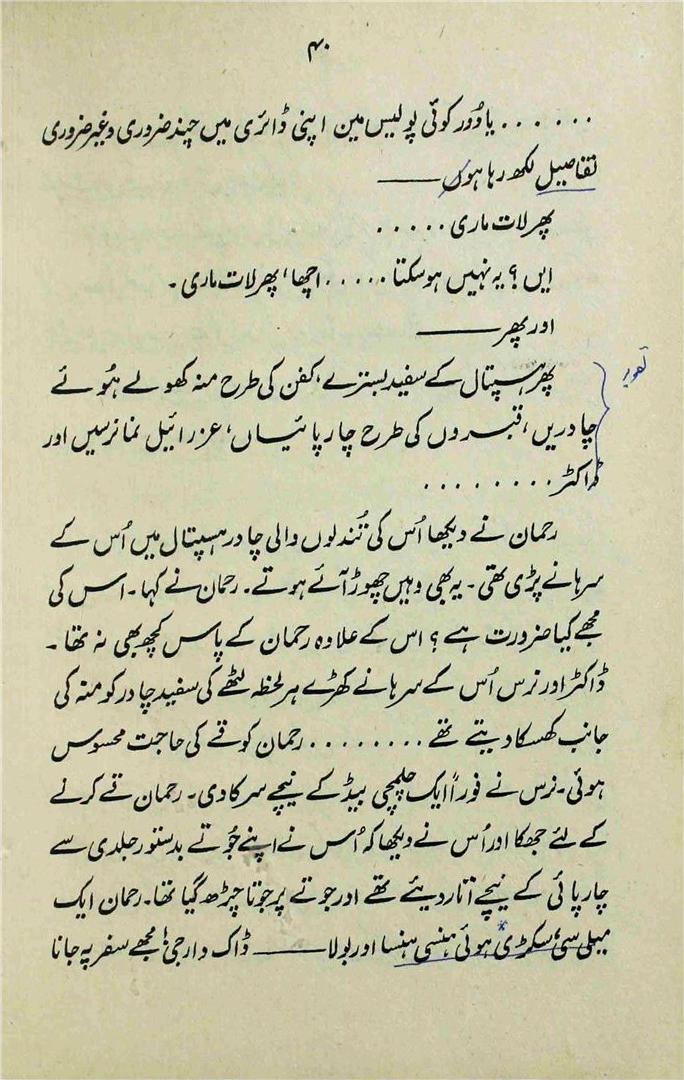 ۴۰
...... یا دُور کوئی پولیس مین اپنی ڈائری میں چند ضروری وغیر ضروری
تفاصیل لکھ رہا ہو ——
پھر لات ماری .....
ایں؟ یہ نہیں ہو سکتا ..... اچھا، پھر لات ماری۔
اور پھر ——
تصویر
پھر ہسپتال کے سفید بسترے، کفن کی طرح منہ کھولے ہُوئے
چادریں، قبروں کی طرح چارپائیاں، عزرائیل نما نرسیں اور
ڈاکٹر ........
رحمان نے دیکھا اُس کی تُندلوں والی چادر ہسپتال میں اُس کے
سرہانے پڑی تھی۔ یہ بھی وہیں چھوڑ آئے ہوتے۔ رحمان نے کہا۔ اس کی
مجھے کیا ضرورت ہے؟ اس کے علاوہ رحمان کے پاس کچھ بھی نہ تھا۔
ڈاکٹر اور نرس اُس کے سرہانے کھڑے ہر لحظہ لٹھے کی سفید چادر کو منہ کی
جانب کھسکا دیتے تھے ........ رحمان کو قے کی حاجت محسوس
ہوئی۔ نرس نے فوراً ایک چلمچی بیڈ کے نیچے سرکا دی۔ رحمان قے کرنے
کے لئے جھکا اور اُس نے دیکھا کہ اُس نے اپنے جُوتے بدستور جلدی سے
چارپائی کے نیچے اُتار دیئے تھے اور جوتے پر جوتا چڑھ گیا تھا۔ رحمان ایک
میلی سی، سکڑی ہوئی ہنسی ہنسا اور بولا —— ڈاک دار جی! مجھے سفر پہ جانا